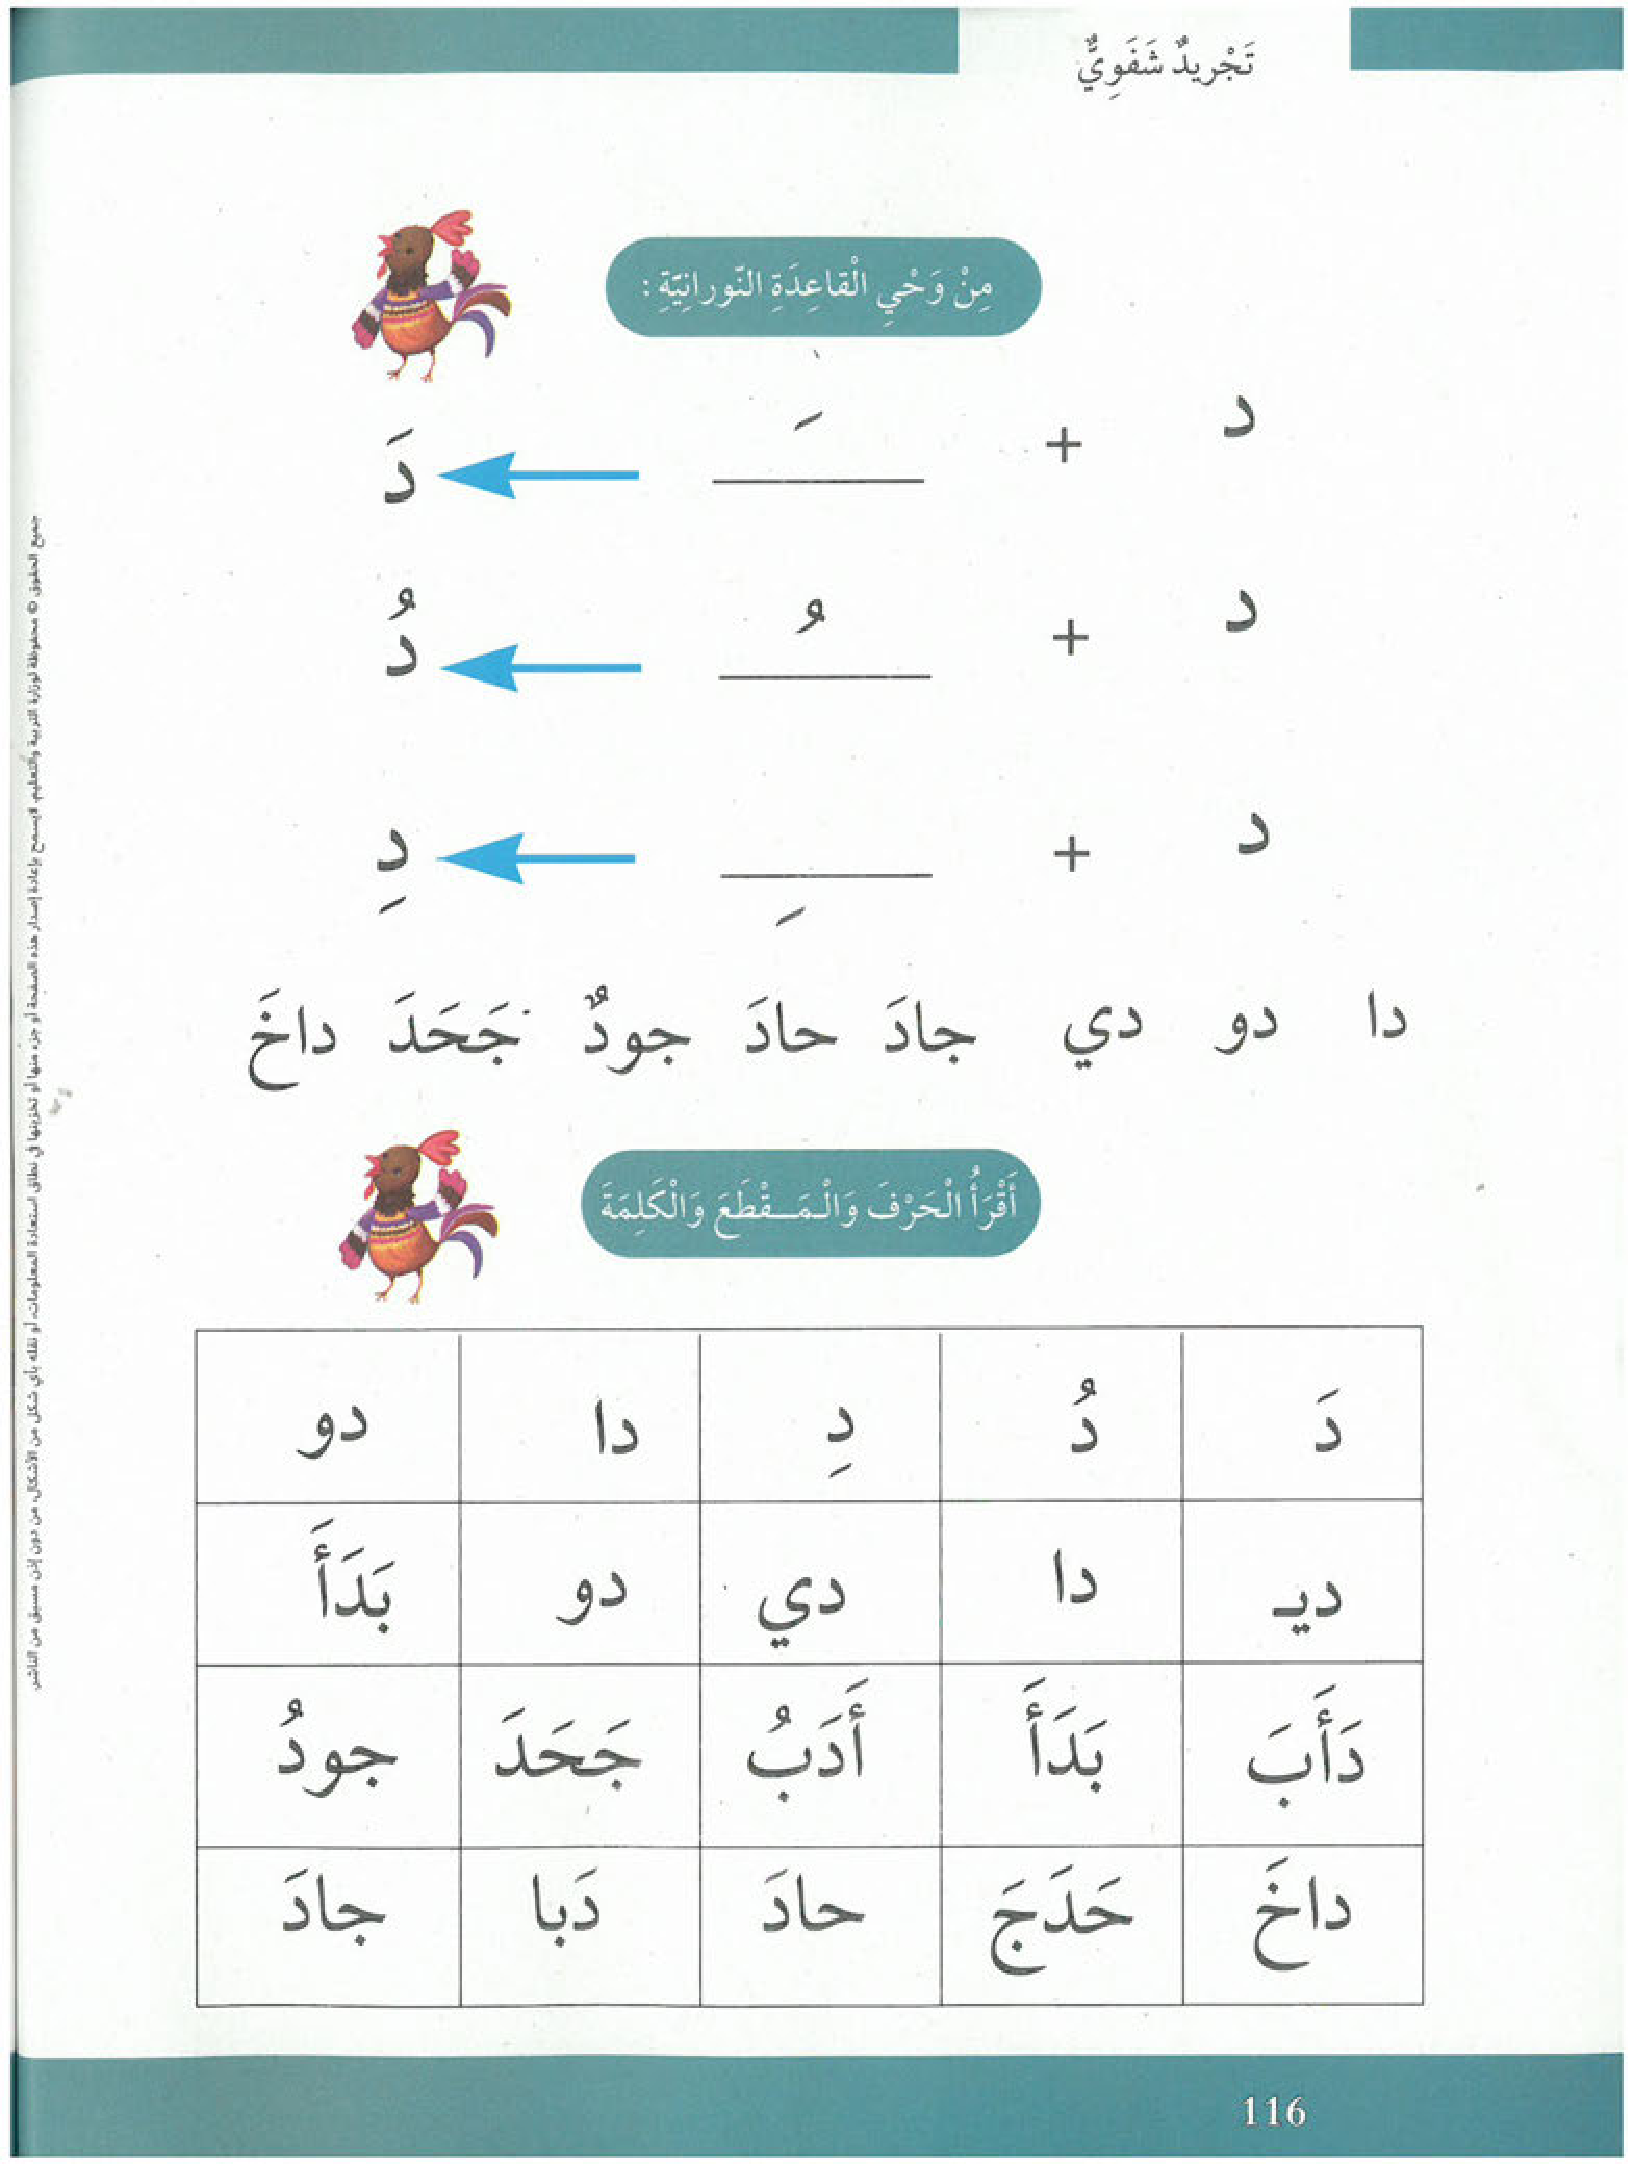 تَجْريدٌ شَفَوِيٌّ
مِنْ وَحْيِ الْقاعِدَةِ النّورانِيّةِ :
د + ـَ دَ
د + ـُ دُ
د + ـِ دِ
دا دو دي جادَ حادَ جودٌ جَحَدَ داخَ
أَقْرَأُ الْحَرْفَ وَالْمَـــقْطَعَ وَالْكَلِمَةَ
دَ دُ دِ دا دو
ديـ دا دي دو بَدَأَ
دَأَبَ بَدَأَ أَدَبُ جَحَدَ جودُ
داخَ حَدَجَ حادَ دَبا جادَ
جميع الحقوق © محفوظة لوزارة التربية والتعليم. لايسمح بإعادة إصدار هذه الصفحة أو جزء منها أو تخزينها في نطاق استعادة المعلومات، أو نقله بأي شكل من الأشكال، من دون إذن مسبق من الناشر.
116